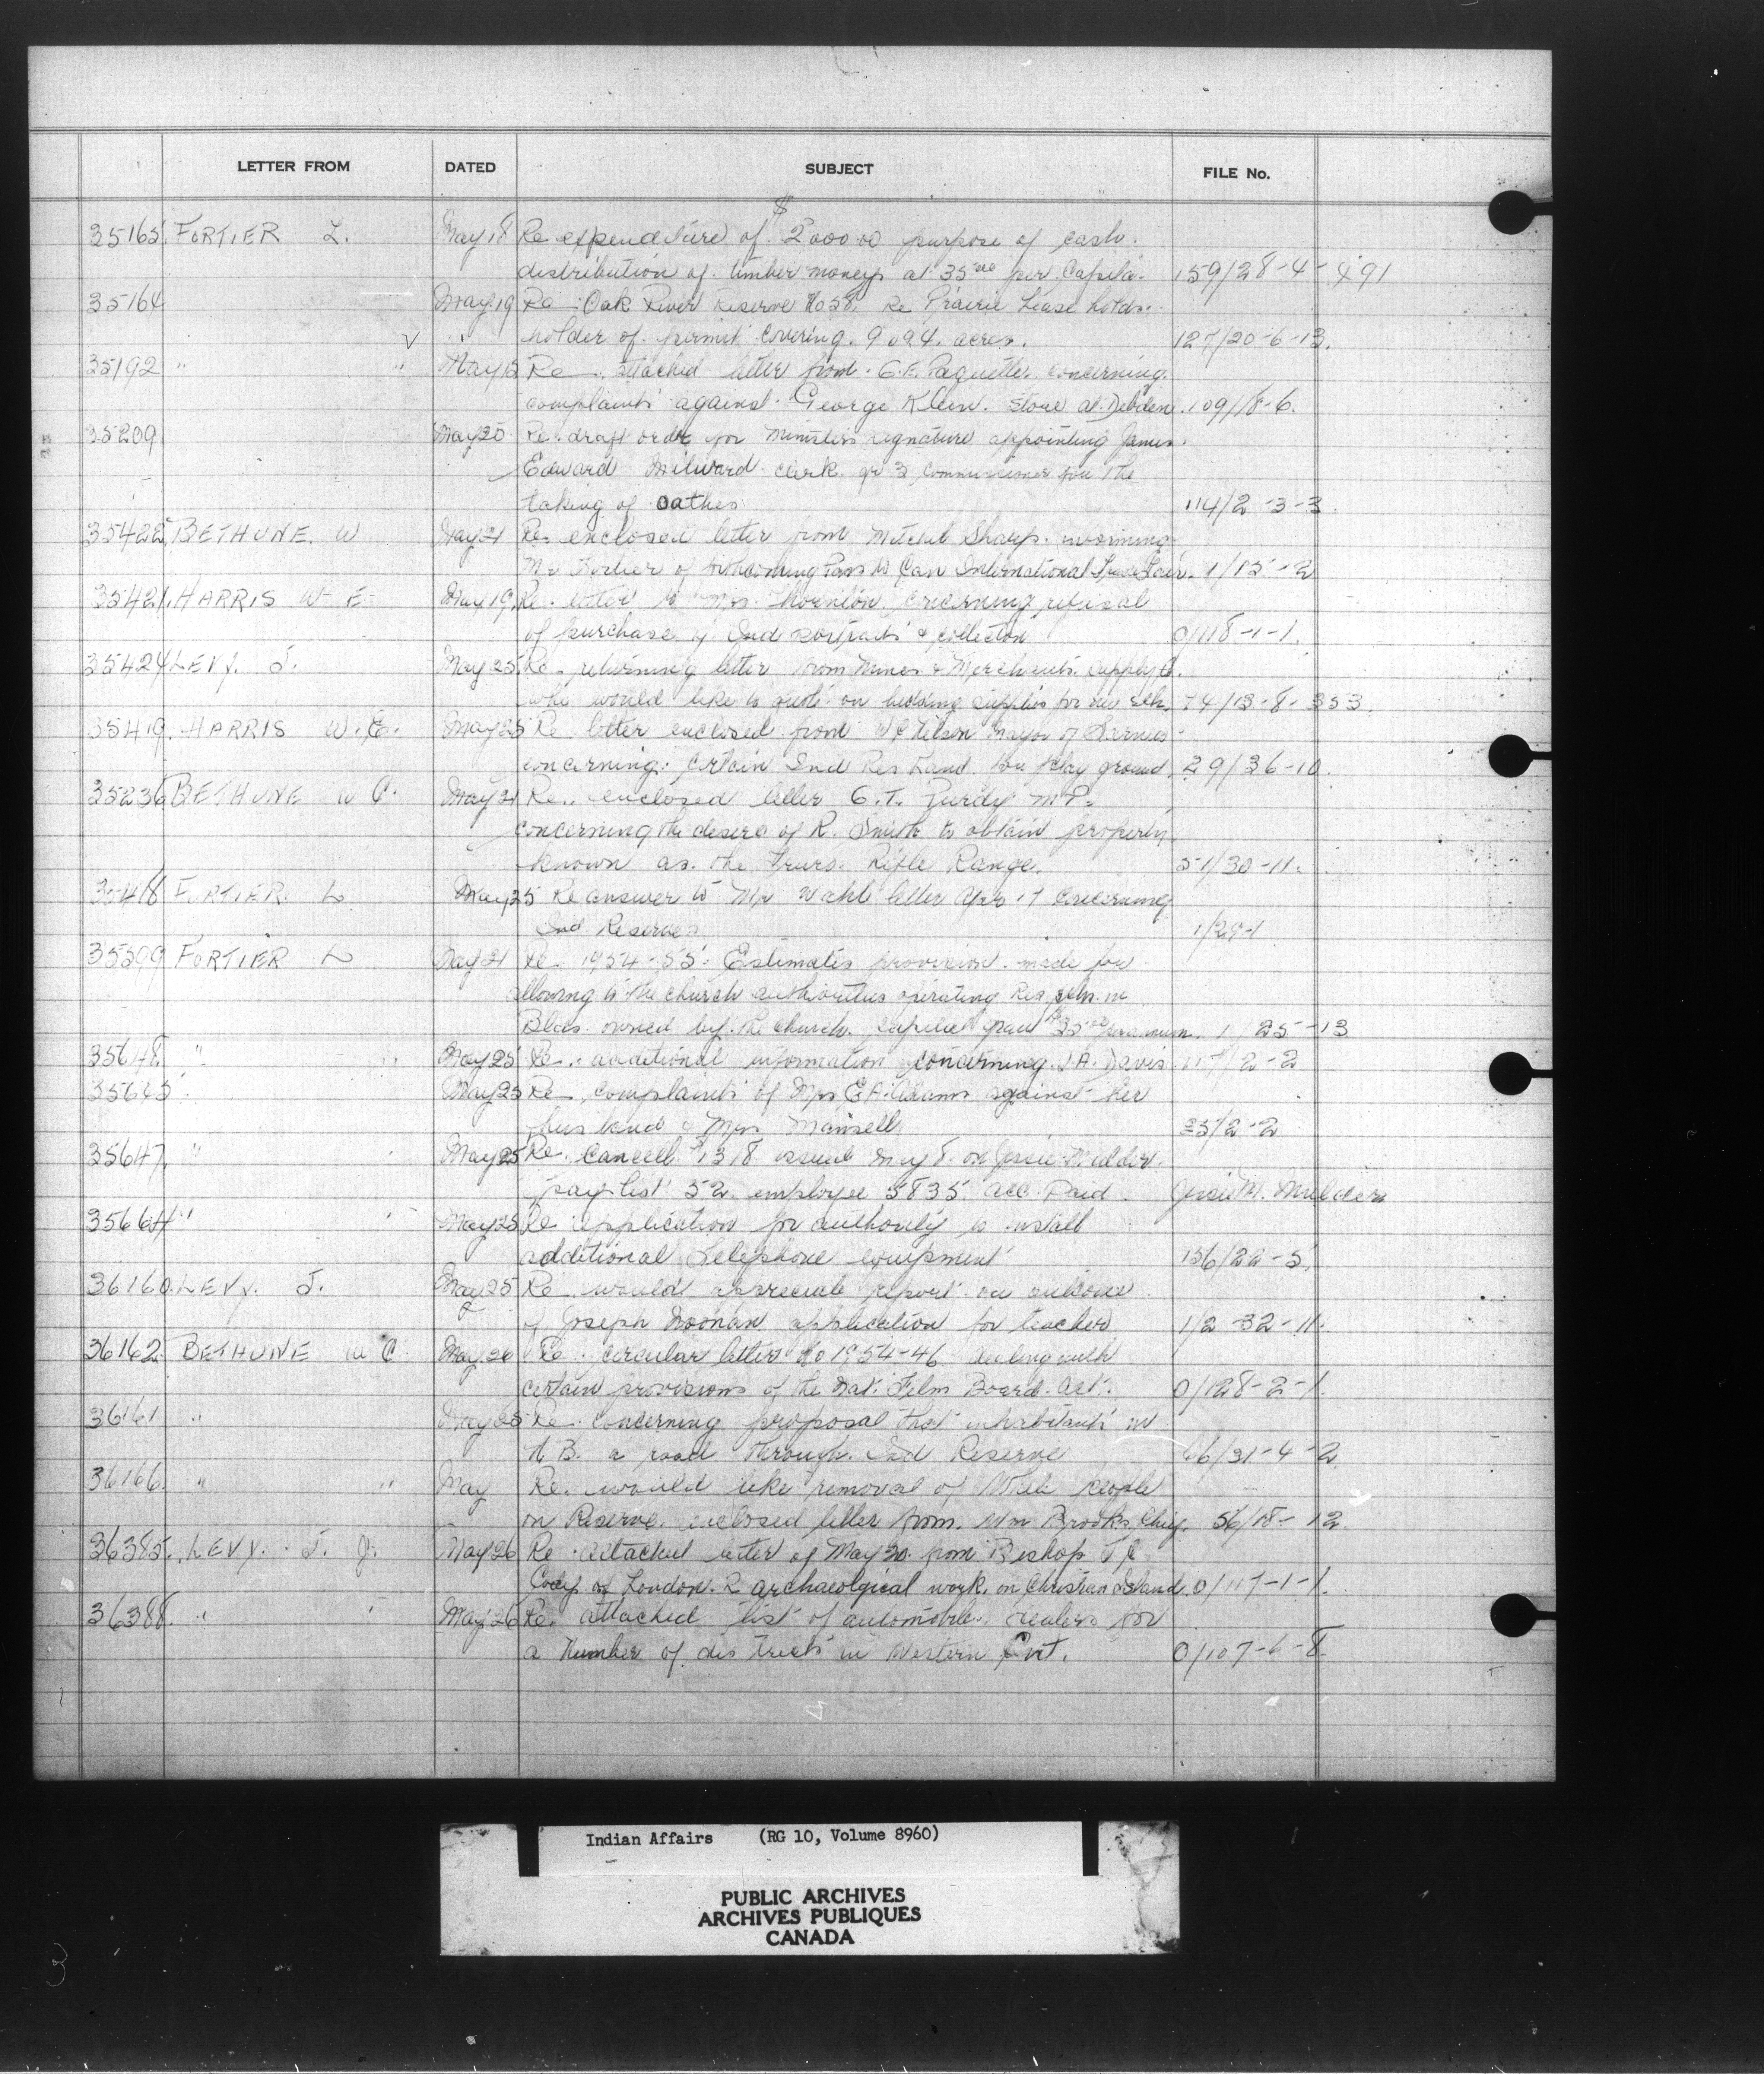 LETTER FROM DATED SUBJECT FILE No.
35165 FORTIER L. May 18 Re expenditure of $2000.00 purpose of cash
distribution of timber moneys at 35.00 per Capita. 159/28-4-491
35164 May 19 Re Oak River Reserve No 58. Re Prairie Lease
holder of permit covering 9094 acres. 127/20-6-13.
35192 " " May 15 Re attached letter from Paquette concerning
complaints against George Klein. Store at Debden. 109/18-6.
35209 May 20 Re draft order for Ministers signature appointing James
Edward Milward clerk gr 3 commissioner for the
taking of oathes 114/2-3-3
35422 BETHUNE. W May 21 Re enclosed letter from Mitchell Sharp
Mr Fortier of forthcoming Can International Trade Fair. 1/15-2
35421 HARRIS W E May 19 Re letter to Mrs. Thornton concerning refusal
of purchase of Ind portraits & collection 0/118-1-1.
35424 LEVY. J. May 25 Re returning letter from Mines & Merchants supply Co.
who would like to quote on bedding supplies for new sch. 74/13-8-353.
35419. HARRIS W. E. May 25 Re letter enclosed from Mayor of Sarnia
concerning certain Ind Res Land for play ground. 29/36-10.
35236 BETHUNE W C. May 21 Re enclosed letter G.T. Purdy M.P.
concerning the desire of R. Smith to obtain property
known as the Truro Rifle Range. 51/30-11.
35418 FORTIER. L May 25 Re answer to Mr letter Apr 17 concerning
Ind Reserves 1/29-1
35399 FORTIER L May 21 Re 1954-55 Estimates provision made for
allowing to the church authorities operating Res schs. in
Bldgs. owned by the church. capita grant per annum. 1/25-13
35648 " " May 25 Re additional information concerning J.A. Davis. 117/2-2
35645 May 25 Re complaints of Mrs E.A. Adams against her
husband & Mrs Mansell 35/2-2
35647 " May 25 Re. Cancell. #1318 issued May 8 on Jessie Mulder.
paylist 52 employee 5835 acc. Paid. Jessie M. Mulder
35664 " " May 25 Re application for authority to install
additional Telephone equipment 156/22-5
36160 LEVY. J. May 25 Re would appreciate report on outcome
of Joseph Noonan application for teacher 1/2-32-11.
36162 BETHUNE W C May 26 Re circular letter No 1954-46 dealing with
certain provisions of the Nat. Film Board Act. 0/128-2-1.
36161 " May 25 Re concerning proposal that inhabitants in
N B. a road through Ind Reserve 66/31-4-2
36166 " " May Re. would like removal of White people
on Reserve. enclosed letter from. Wm Brooks, Chief. 56/18-12
36385. LEVY. J. J. May 26 Re attached letter of May 20 from Bishop J C
Cody of London. R archaeolgical work. on Christian Island. 0/117-1-1.
36388 " " May 26 Re. attached list of automobile dealers for
a number of districts in Western Ont. 0/107-6-8
Indian Affairs (RG 10, Volume 8960)
PUBLIC ARCHIVES
ARCHIVES PUBLIQUES
CANADA
3